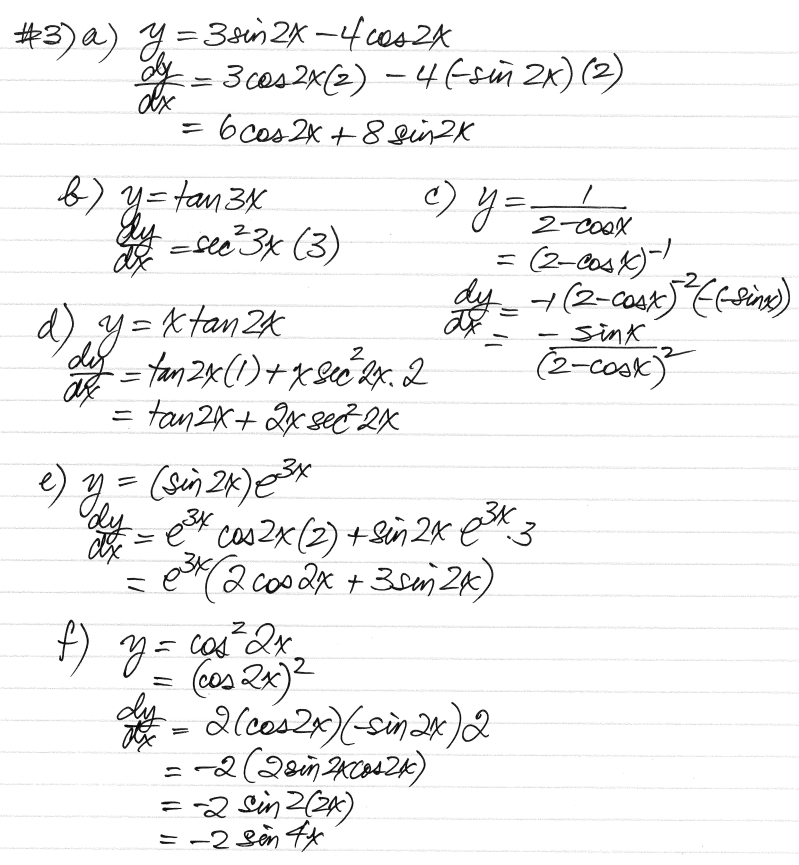 #3) a) y = 3sin2x − 4cos2x
dy/dx = 3cos2x(2) − 4(−sin 2x)(2)
= 6cos2x + 8sin2x
b) y = tan3x
dy/dx = sec²3x (3)
c) y = 1/(2−cosx)
= (2−cosx)⁻¹
dy/dx = −1(2−cosx)⁻²(−(−sinx))
= −sinx/(2−cosx)²
d) y = x tan2x
dy/dx = tan2x(1) + x sec²2x·2
= tan2x + 2x sec²2x
e) y = (sin2x)e³ˣ
dy/dx = e³ˣ cos2x(2) + sin2x e³ˣ·3
= e³ˣ(2cos2x + 3sin2x)
f) y = cos²2x
= (cos2x)²
dy/dx = 2(cos2x)(−sin2x)2
= −2(2sin2xcos2x)
= −2 sin2(2x)
= −2 sin4x